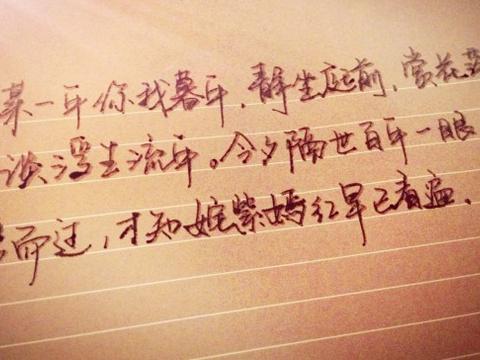 某一年你我暮年，静坐庭前，赏花
谈浮生流年。今夕隔世百年一眼
而过，才知姹紫嫣红早已看遍.